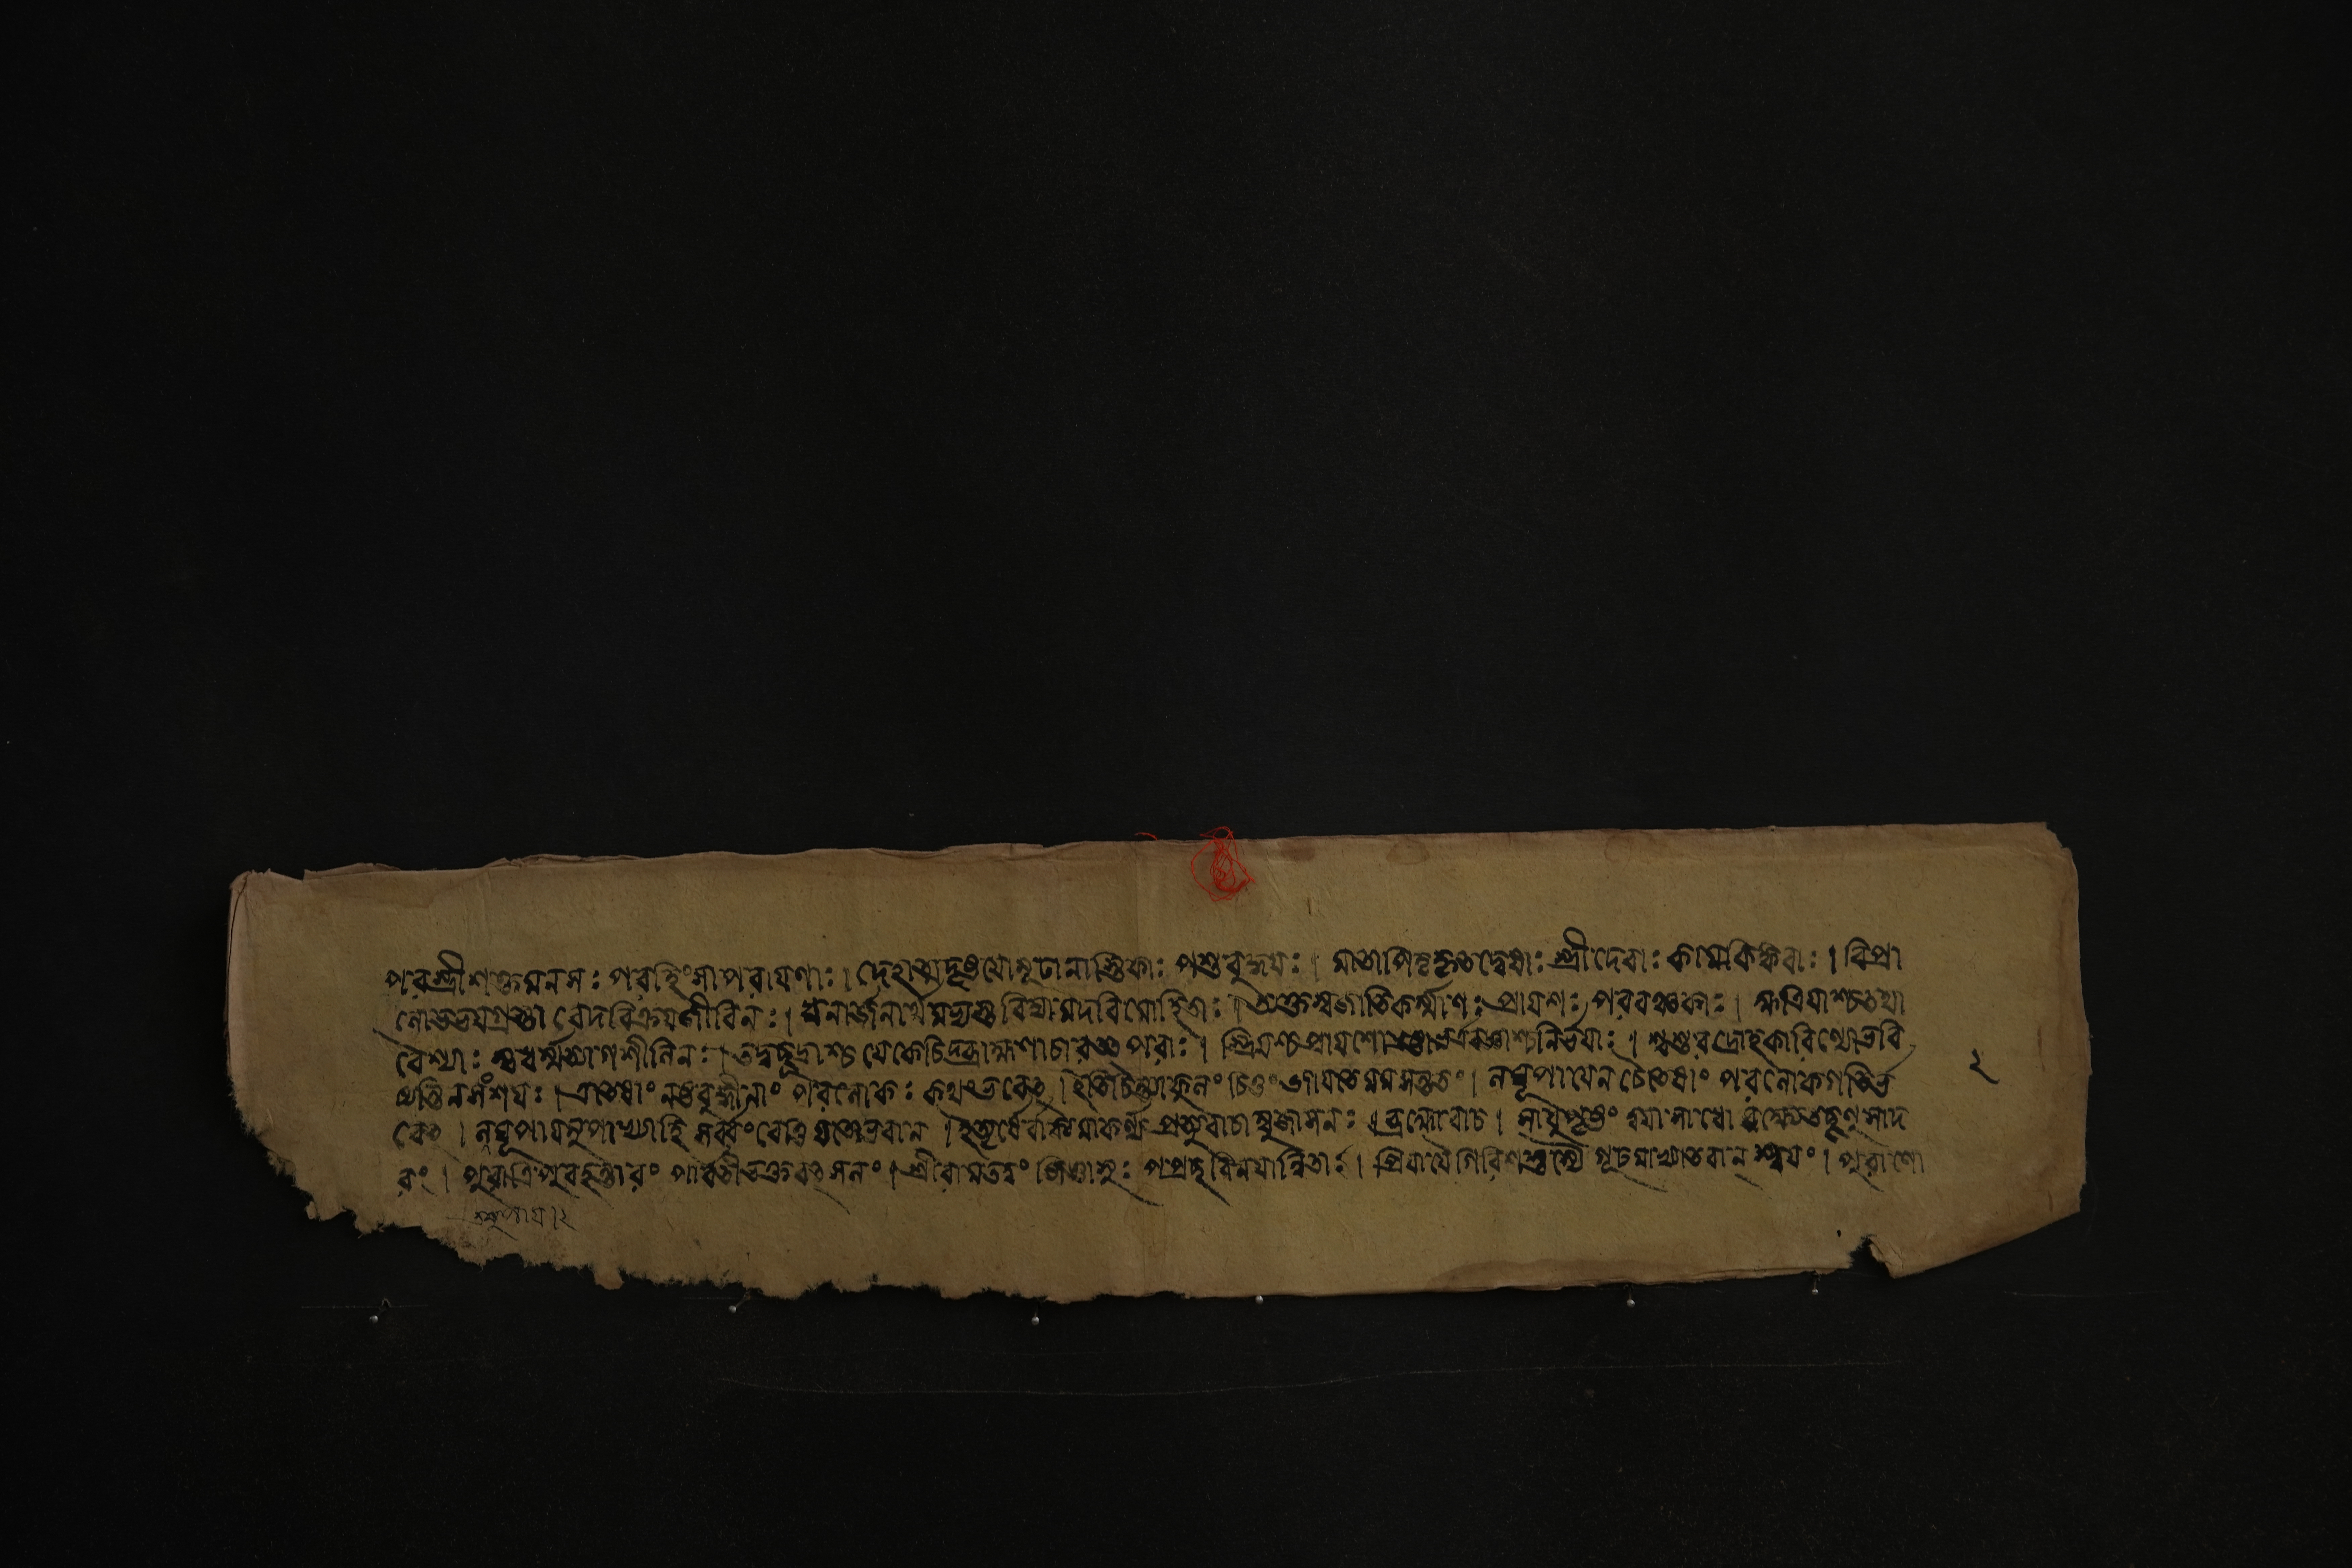 পরস্ত্রীশক্তমনসঃ পরহিংসাপরাযণাঃ। দেহাত্মদৃষ্টযোমূঢানাস্তিকাঃ পশুবুদ্ধযঃ। মাতাপিতৃকৃতদ্বেষাঃ স্ত্রীদেবাঃ কামকিঙ্করাঃ। বিপ্রা
লোভভযগ্রস্তা বেদবিক্রযজীবিনঃ। ধনার্জনার্থমভ্যস্তবিদ্যামদবিমোহিতাঃ। ত্যক্তস্বজাতিকর্ম্মাণঃ প্রাযশঃ পরবঞ্চকাঃ। ক্ষত্রিযাশ্চতথা
বেশ্যাঃ স্বধর্ম্মত্যাগশীলিনঃ। তদ্বচ্ছূদ্রাশ্চ যেকেচিদ্ব্রাহ্মণাচারতৎপরাঃ। স্ত্রিযশ্চপ্রাযশো নির্ভযাঃ। শ্বশুরদ্রোহকারিণ্যোভবি
ষ্যন্তিনসংশযঃ। এতেষাং নষ্টবুদ্ধীনাং পরলোকঃ কথংভবেৎ। ইতিচিন্তাকুলং চিত্তং জাযতেমমসন্ততং। লঘূপাযেনচৈতেষাং পরলোকগতির্ভ
বেৎ। লঘূপাযমুপাখ্যাহি সর্ব্বংবেত্তিযতোভবান। ইত্যৃষের্বাক্যমাকর্ণ্য প্রত্যুবাচাম্বুজাসনঃ। ব্রহ্মোবাচ। সাধুপৃষ্টং ত্বযাসাধো বক্ষ্যেতচ্ছৃণুসাদ
রং। পুরাত্রিপুরহন্তারং পার্বতীভক্তবৎসলং। শ্রীরামতত্ত্বং জিজ্ঞাসুঃ পপ্রচ্ছবিনযান্বিতা। প্রিযাযৈগিরিশস্তস্যৈ গূঢমাখ্যাতবান্ স্বযং। পুরাণো
২